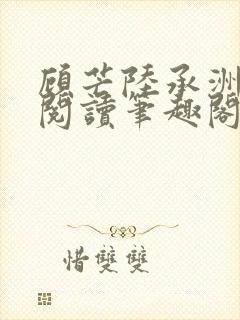 顾芒陸承洲
閱讀筆趣閣
惜雙雙